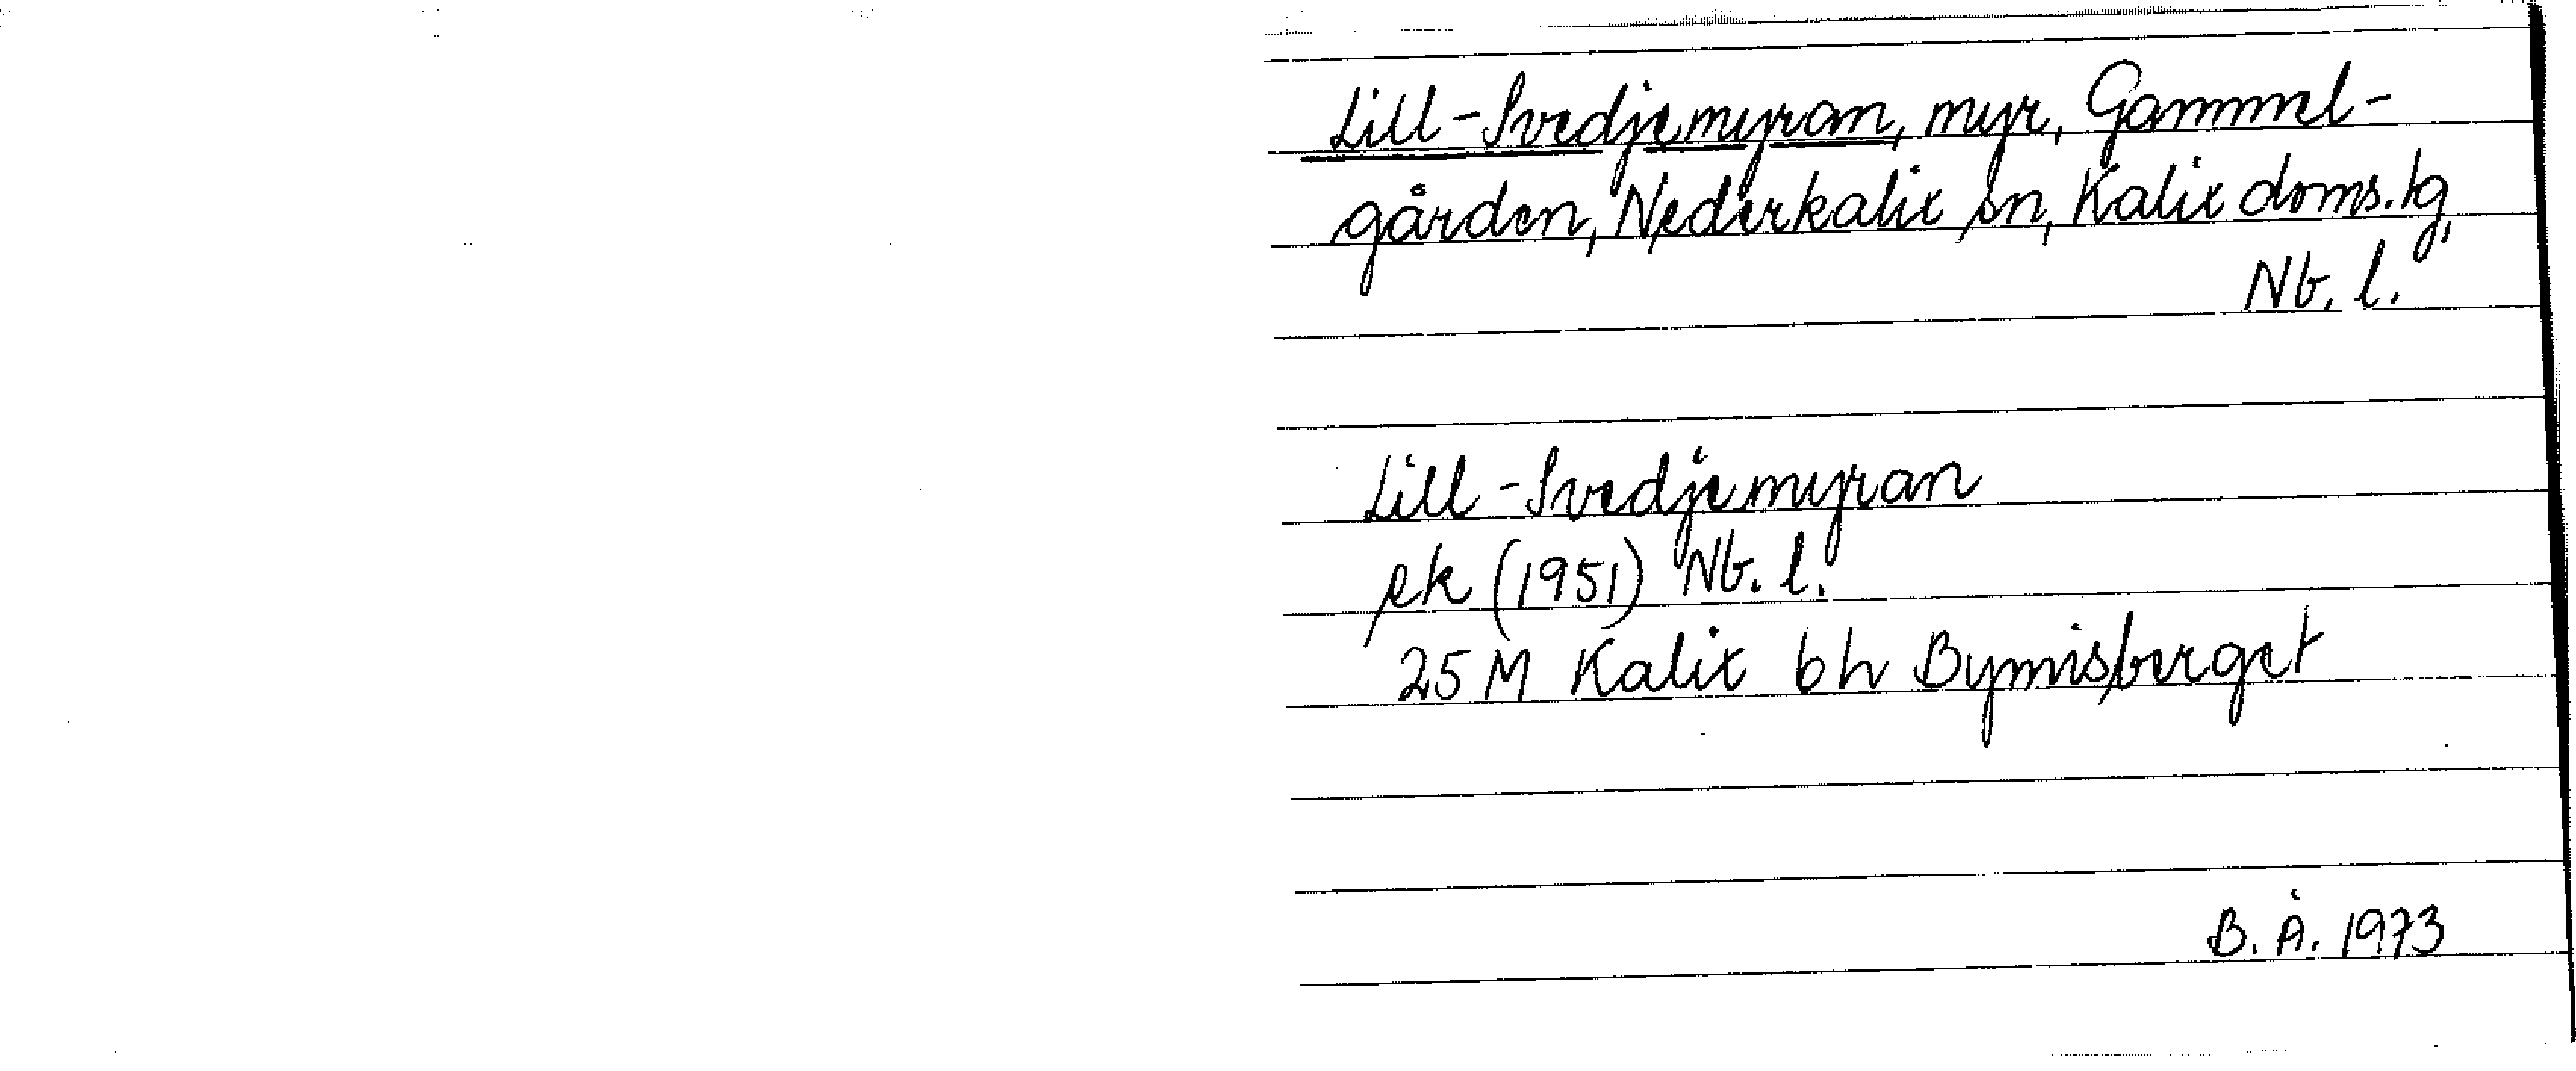 Lill-Svedjemyran, myr, Gammel-
gården, Nederkalix sn, Kalix doms.tg,
Nb. l.
Lill-Svedjemyran
ek (1951) Nb. l.
25 M Kalix 6h Bymisberget
B. Å. 1973